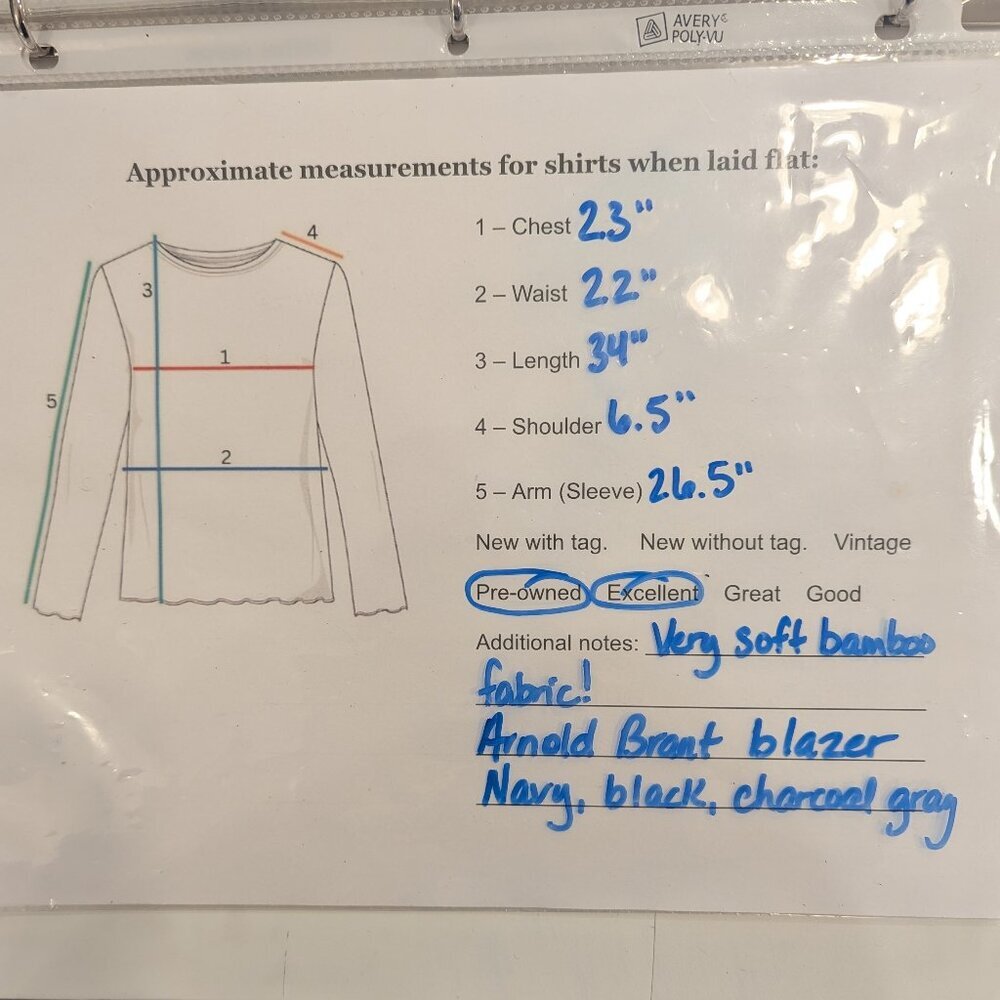 AVERY®
POLY-VU
Approximate measurements for shirts when laid flat:
1 – Chest 23"
2 – Waist 22"
3 – Length 34"
4 – Shoulder 6.5"
5 – Arm (Sleeve) 26.5"
New with tag. New without tag. Vintage
Pre-owned Excellent Great Good
Additional notes: Very soft bamboo
fabric!
Arnold Brant blazer
Navy, black, charcoal gray
4
3
1
5
2